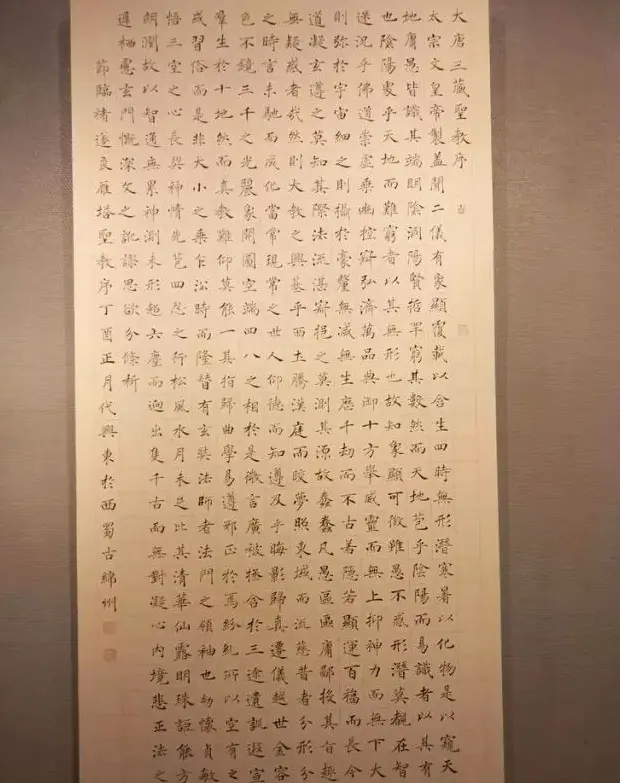 大唐三藏聖教序
太宗文皇帝製蓋聞二儀有象顯覆載以含生四時無形潛寒暑以化物是以窺天
地庸愚皆識其端明陰洞陽賢哲罕窮其數然而天地苞乎陰陽而易識者以其有
也陰陽處乎天地而難窮者以其無形也故知象顯可徵雖愚不惑形潛莫覩在智
迷況乎佛道崇虛乘幽控寂弘濟萬品典御十方舉威靈而無上抑神力而無下大
則彌於宇宙細之則攝於豪釐無滅無生歷千劫而不古若隱若顯運百福而長今
道凝玄遵之莫知其際法流湛寂挹之莫測其源故蠢蠢凡愚區區庸鄙投其旨趣
無疑惑者哉然則大教之興基乎西土騰漢庭而皎夢照東域而流慈昔者分形分
之時言未馳而成化當常現常之世人仰德而知遵及乎晦影歸真遷儀越世金容
色不鏡三千之光麗象開圖空端四八之相於是微言廣被拯含於三途遺訓遐宣
羣生於十地然而真教難仰莫能一其指歸曲學易遵邪正於焉紛糾所以空有之
或習俗而是非大小之乘乍沿時而隆替有玄奘法師者法門之領袖也幼懷貞敏
悟三空之心長契神情先苞四忍之行松風水月未足比其清華仙露明珠詎能方
朗潤故以智通無累神測未形超六塵而迥出隻千古而無對凝心內境悲正法之
遲栖慮玄門慨深文之訛謬思欲分條析
節臨褚遂良雁塔聖教序丁酉正月代興東於西蜀古綿州